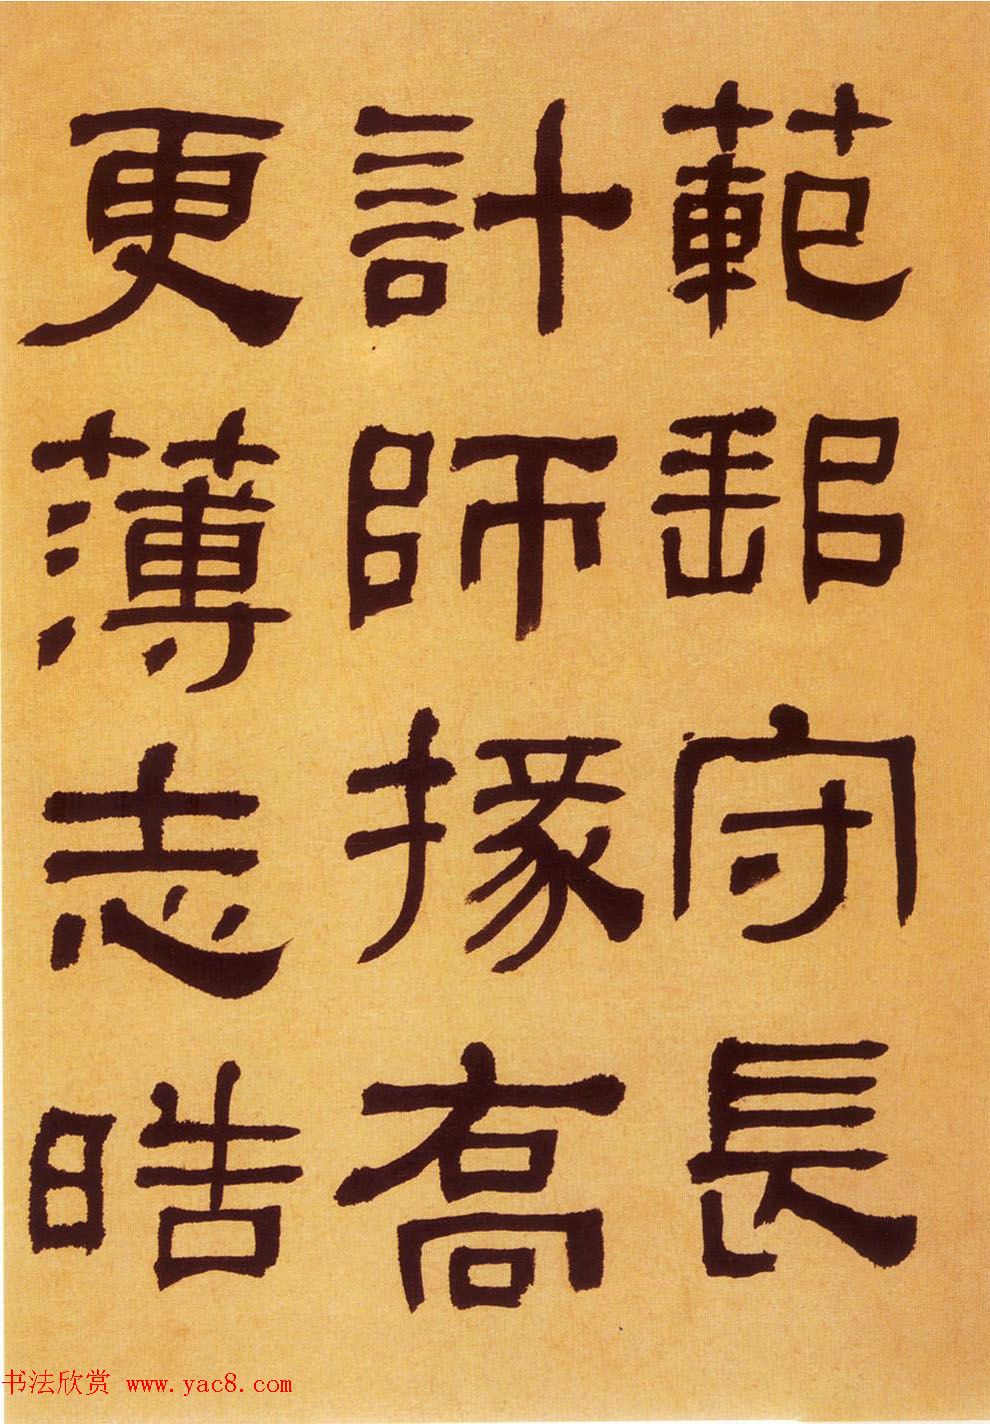 範邽守長
計師掾喬
更薄志晧
书法欣赏 www.yac8.com